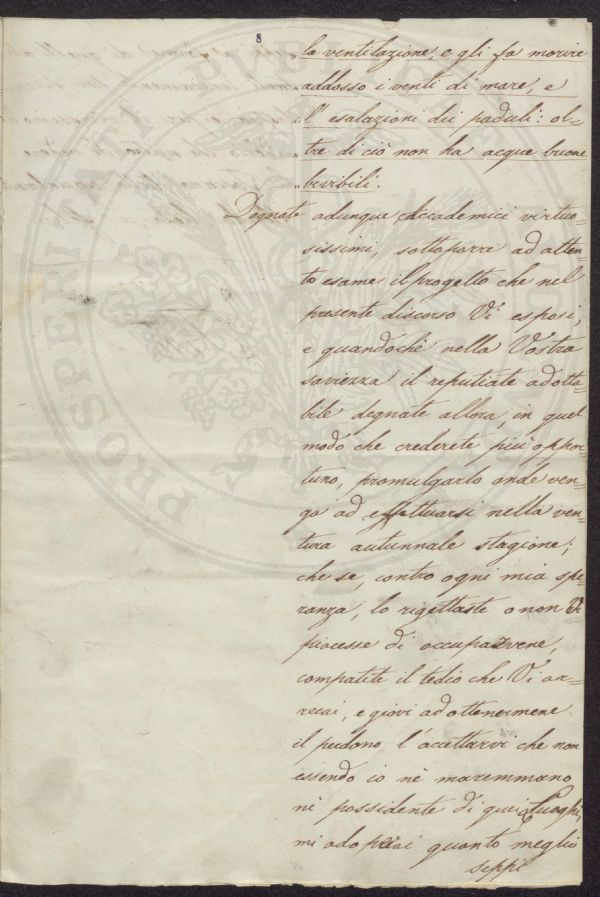 8
„la ventilazione, e gli fa morire
„addosso i venti di mare, e
„l'esalazioni dei paduli: ol=
„tre di ciò non ha acque buone
„bevibili.
Degnate adunque Accademici virtuo=
sissimi, sottoporre ad atten=
to esame il progetto che nel
presente discorso Vi esposi,
e quandochè nella Vostra
saviezza il reputiate adotta=
bile degnate allora, in quel
modo che crederete più oppor=
tuno, promulgarlo onde ven=
ga ad effettuarsi nella ven=
tura autunnale stagione;
che se, contro ogni mia spe=
ranza, lo rigettaste o non Vi
piacesse di occuparvene,
compatite il tedio che Vi ar=
recai, e giovi ad ottenermene
il perdono, l'accettarvi che non
essendo io nè maremmano
nè possidente di quei Luoghi,
mi adoprai quanto meglio
seppi
PROSPERITATI